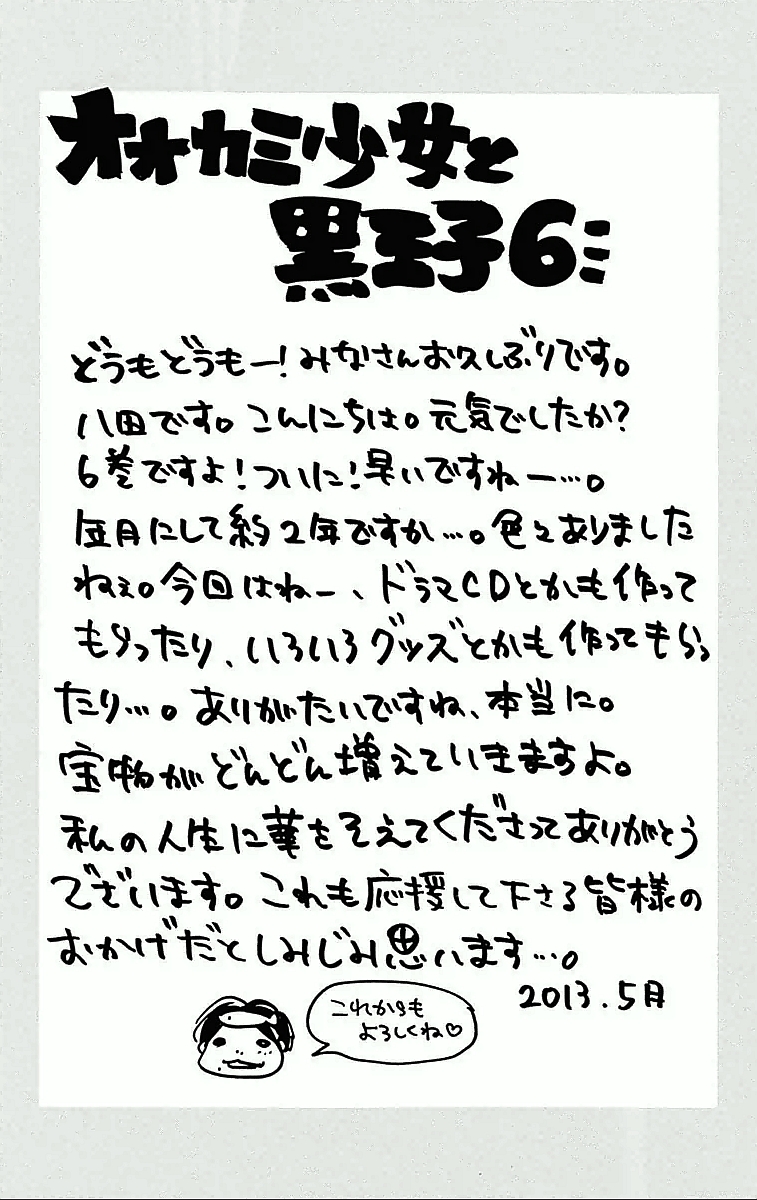 オオカミ少女と
黒王子6
どうもどうもー！みなさんお久しぶりです。
八田です。こんにちは。元気でしたか？
6巻ですよ！ついに！早いですねー…。
年月にして約2年ですか…。色々ありました
ねぇ。今回はねー、ドラマCDとかも作って
もらったり、いろいろグッズとかも作ってもらっ
たり…。ありがたいですね、本当に。
宝物がどんどん増えていきますよ。
私の人生に華をそえてくださってありがとう
ございます。これも応援して下さる皆様の
おかげだとしみじみ思います…。
2013.5月
これからも
よろしくね♡